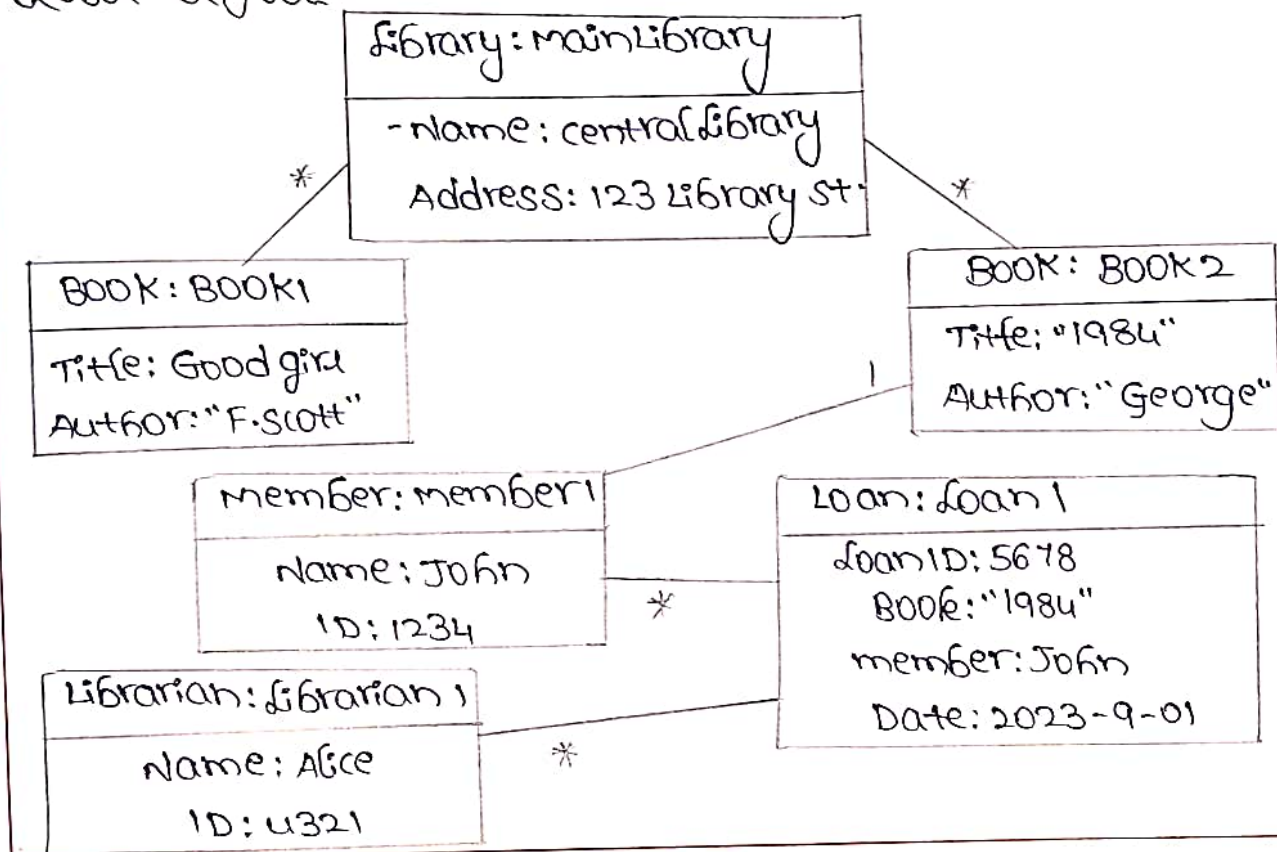 Library: MainLibrary
- Name: central Library
Address: 123 Library st.
*
*
BOOK: BOOK1
Title: Good girl
Author: "F. Scott"
BOOK: BOOK2
Title: "1984"
Author: "George"
1
Member: Member1
Name: John
ID: 1234
*
Loan: Loan1
LoanID: 5678
Book: "1984"
member: John
Date: 2023-9-01
Librarian: Librarian1
Name: Alice
ID: 4321
*